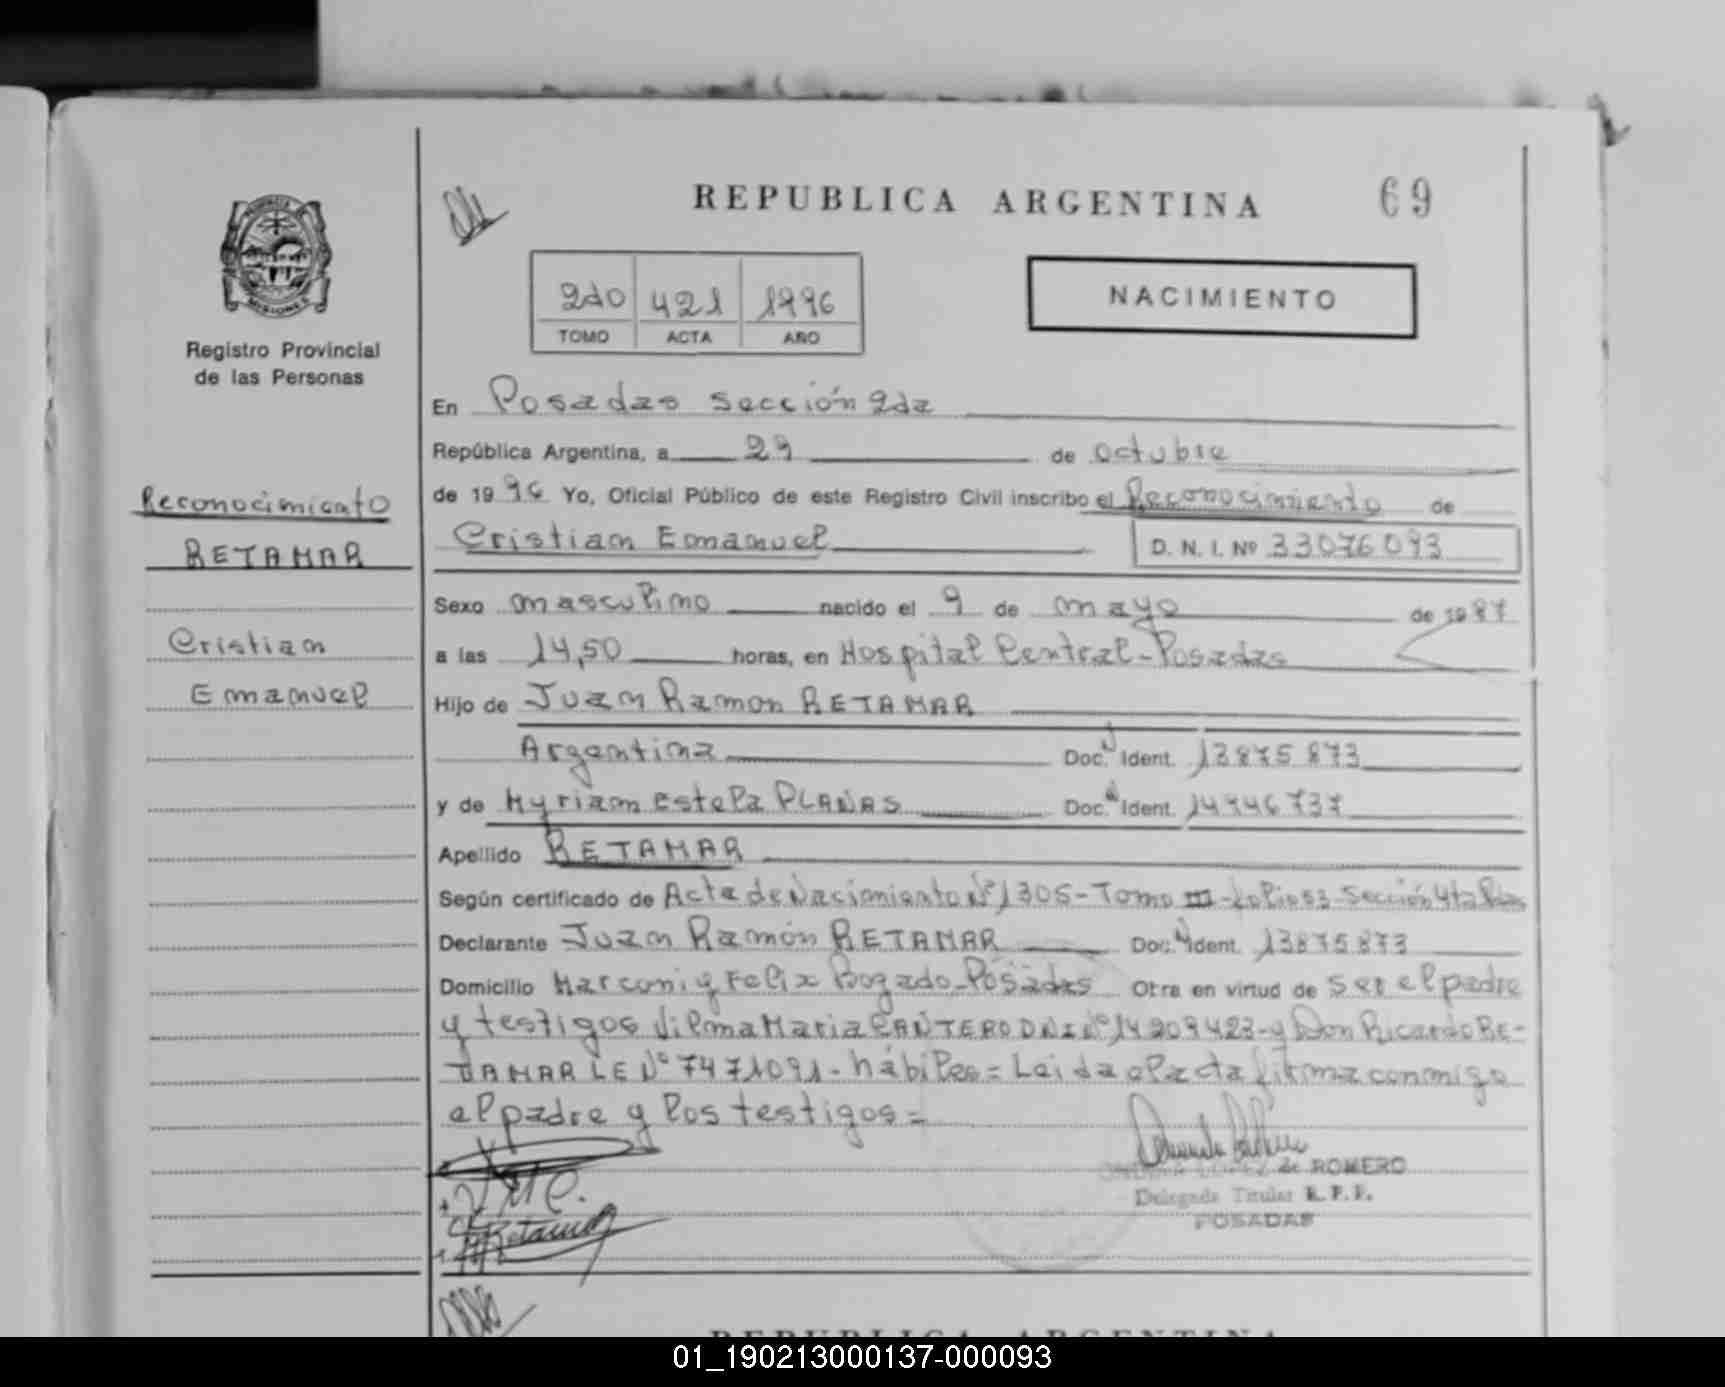 REPUBLICA ARGENTINA
69
2do 421 1996
TOMO ACTA AÑO
NACIMIENTO
MISIONES
Registro Provincial
de las Personas
Reconocimiento
RETAMAR
Cristian
Emanuel
En Posadas sección 2da
República Argentina, a 29 de octubre
de 1996 Yo, Oficial Público de este Registro Civil inscribo el Reconocimiento de
Cristian Emanuel D. N. I. Nº 33076093
Sexo masculino nacido el 9 de mayo de 1987
a las 14,50 horas, en Hospital Central-Posadas
Hijo de Juan Ramon RETAMAR
Argentina Doc. Ident. 13875873
y de Myriam Estela PLANAS Doc. Ident. 14946737
Apellido RETAMAR
Según certificado de Acta de Nacimiento Nº 1305-Tomo III-folio 53-Sección 4ta
Declarante Juan Ramón RETAMAR Doc. Ident. 13875873
Domicilio Marconi y Felix Bogado-Posadas Otra en virtud de ser el padre
y testigos Vilma Maria CANTERO DNI Nº 14209423-y Don Ricardo RE-
TAMAR LE Nº 7471091-hábiles= Leida el acta firma conmigo
el padre y los testigos=
LOPEZ de ROMERO
Delegada Titular R.P.P.
POSADAS
V M C.
Retamar
REPUBLICA ARGENTINA
01_190213000137-000093